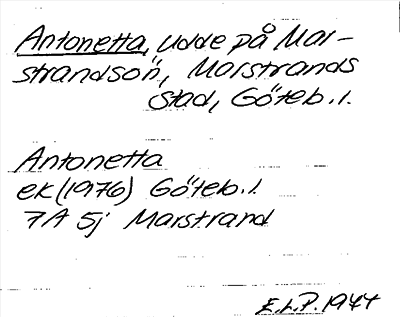 Antonetta, udde på Mar-
strandsön, Marstrands
stad, Göteb. l.
Antonetta
ek (1976) Göteb. l.
7A 5j Marstrand
E.L.P. 1944